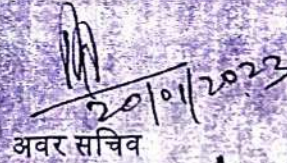 20/01/2023
अवर सचिव